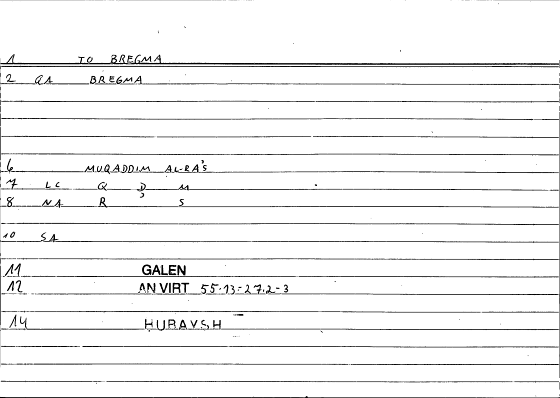 1 TO BREGMA
2 QA BREGMA
6 MUQADDIM AL-RA'S
7 LC Q D M
8 NA R ' S
10 SA
11 GALEN
12 AN VIRT 55.13-27.2-3
14 HUBAYSH